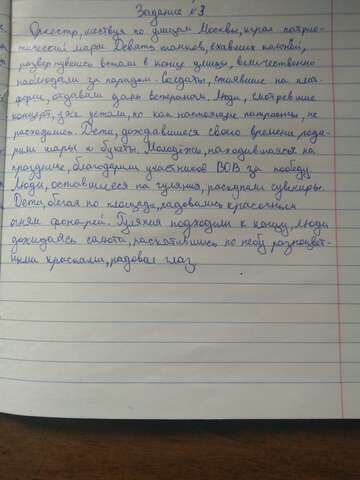 Задание №3
Оркестр, шествуя по улицам Москвы, играл патрио-
тический марш. Девять танков, ехавших колонной,
развернувшись встали в конце улицы, величественно
наблюдали за парадом. Солдаты, стоявшие на плат-
форме, отдавали дань ветеранам. Люди, смотревшие
концерт, уже устали, но как настоящие патриоты, не
расходились. Дети, дождавшиеся своего времени, пода-
рили шары и букеты. Молодёжь, находившаяся на
празднике, благодарили участников ВОВ за победу.
Люди, оставшиеся на гуляния, раскупали сувениры.
Дети, бегая по площади, радовались красочным
огням фонарей. Гуляния подходили к концу, люди
дожидаясь салюта, раскатившись по небу разноцвет-
ными красками, радовал глаз.